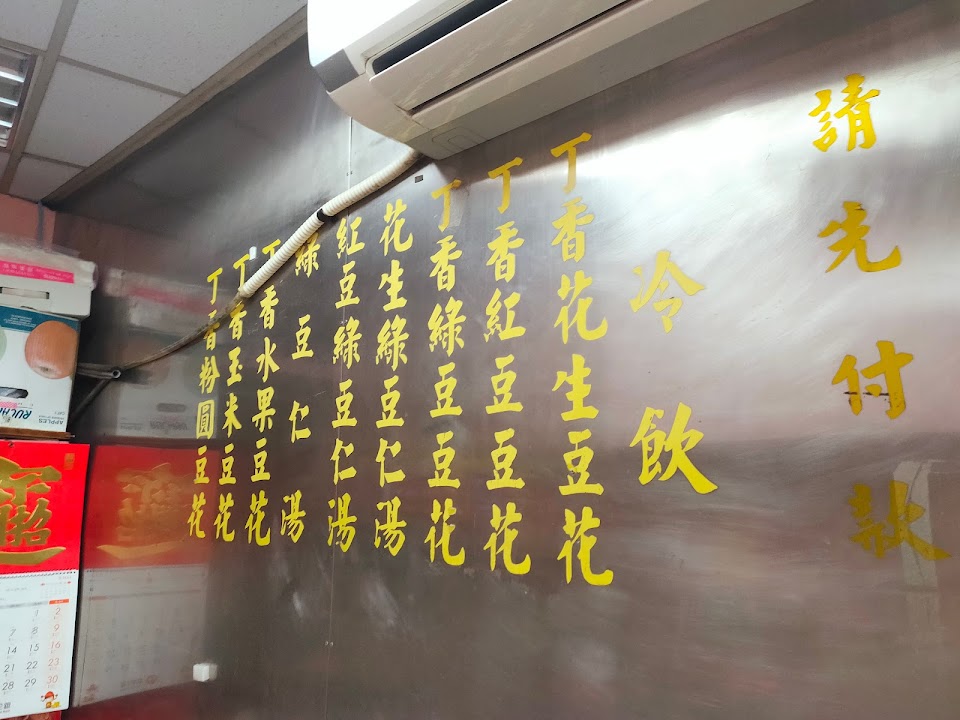 請先付款
冷飲
丁香花生豆花
丁香紅豆豆花
丁香綠豆豆花
花生綠豆仁湯
紅豆綠豆仁湯
綠豆仁湯
丁香水果豆花
丁香玉米豆花
丁香粉圓豆花
APPLES
1 2
7 8 9
14 15 16
21 22 23
28 29 30